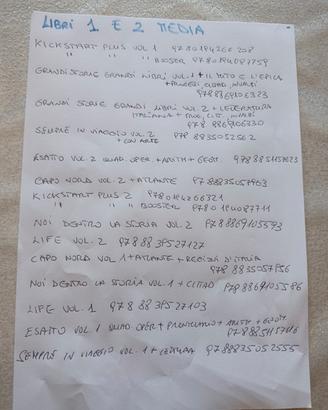 LIBRI 1 E 2 MEDIA
KICKSTART PLUS VOL 1 9780194266208
" " " BOOSTER
GRANDI STORIE GRANDI LIBRI VOL. 1 + IL MITO E L'EPICA
9788869106323
GRANDI STORIE GRANDI LIBRI VOL. 2 + LETTERATURA
ITALIANA +
978 8869106330
SEMPRE IN VIAGGIO VOL. 2 978 8835052562
+ CON ARTE
ESATTO VOL 2 QUAD. OPER. + ARITH + GEOM.
CAPO NORD VOL. 2 + ATLANTE 9788835057963
KICKSTART PLUS 2 9780194266321
" " " BOOSTER 9780194087711
NOI DENTRO LA STORIA VOL. 2 9788869105593
LIFE VOL. 2 9788839527127
CAPO NORD VOL 1 + ATLANTE + REGIONI D'ITALIA
978 8835057956
NOI DENTRO LA STORIA VOL. 1 + CITTAD 9788869105586
LIFE VOL. 1 978 88 39527103
ESATTO VOL 1 QUAD OPER + PRONTUARIO + ARITH + GEOM
SEMPRE IN VIAGGIO VOL. 1 + 9788835052555